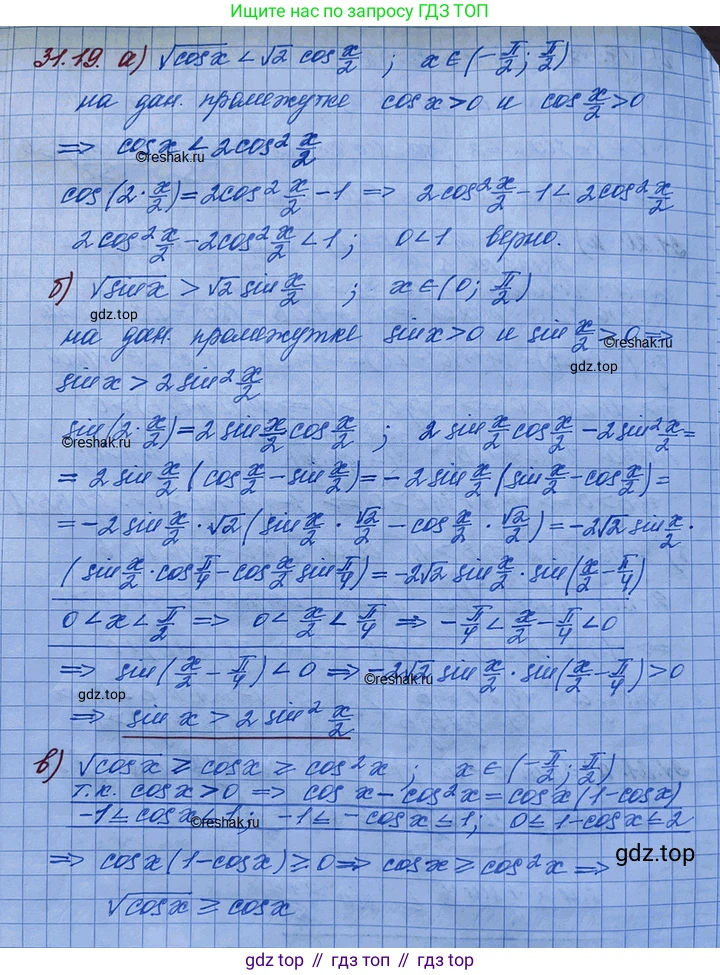 Ищите нас по запросу ГДЗ ТОП
31.19. а) √cosx < √2 cos x/2 ; x∈(-π/2; π/2)
на дан. промежутке cosx>0 и cos x/2>0
⇒ cosx < 2cos² x/2
©reshak.ru
cos(2·x/2)=2cos² x/2 -1 ⇒ 2cos² x/2 -1 < 2cos² x/2
2cos² x/2 - 2cos² x/2 < 1; 0<1 верно.
б) √sinx > √2 sin x/2 ; x∈(0; π/2)
gdz.top
на дан. промежутке sinx>0 и sin x/2 >0 ⇒
©reshak.ru
gdz.top
sinx > 2sin² x/2
sin(2·x/2)=2sin x/2 cos x/2 ; 2sin x/2 cos x/2 - 2sin² x/2 =
©reshak.ru
= 2sin x/2 (cos x/2 - sin x/2) = -2sin x/2 (sin x/2 - cos x/2) =
= -2sin x/2 · √2 (sin x/2 · √2/2 - cos x/2 · √2/2) = -2√2 sin x/2 ·
(sin x/2 · cos π/4 - cos x/2 sin π/4) = -2√2 sin x/2 · sin(x/2 - π/4)
0<x<π/2 ⇒ 0<x/2<π/4 ⇒ -π/4 < x/2 - π/4 < 0
⇒ sin(x/2 - π/4)<0 ⇒ -2√2 sin x/2 · sin(x/2 - π/4)>0
©reshak.ru
gdz.top
⇒ sin x > 2 sin² x/2
в) √cosx ≥ cosx ≥ cos²x ; x∈(-π/2; π/2)
т.к. cosx>0 ⇒ cos x - cos²x = cosx(1-cosx)
-1≤cosx≤1; -1≤-cosx≤1; 0≤1-cosx≤2
©reshak.ru
⇒ cosx(1-cosx)≥0 ⇒ cosx≥cos²x ⇒
gdz.top
√cosx ≥ cosx
gdz top // гдз топ // gdz.top